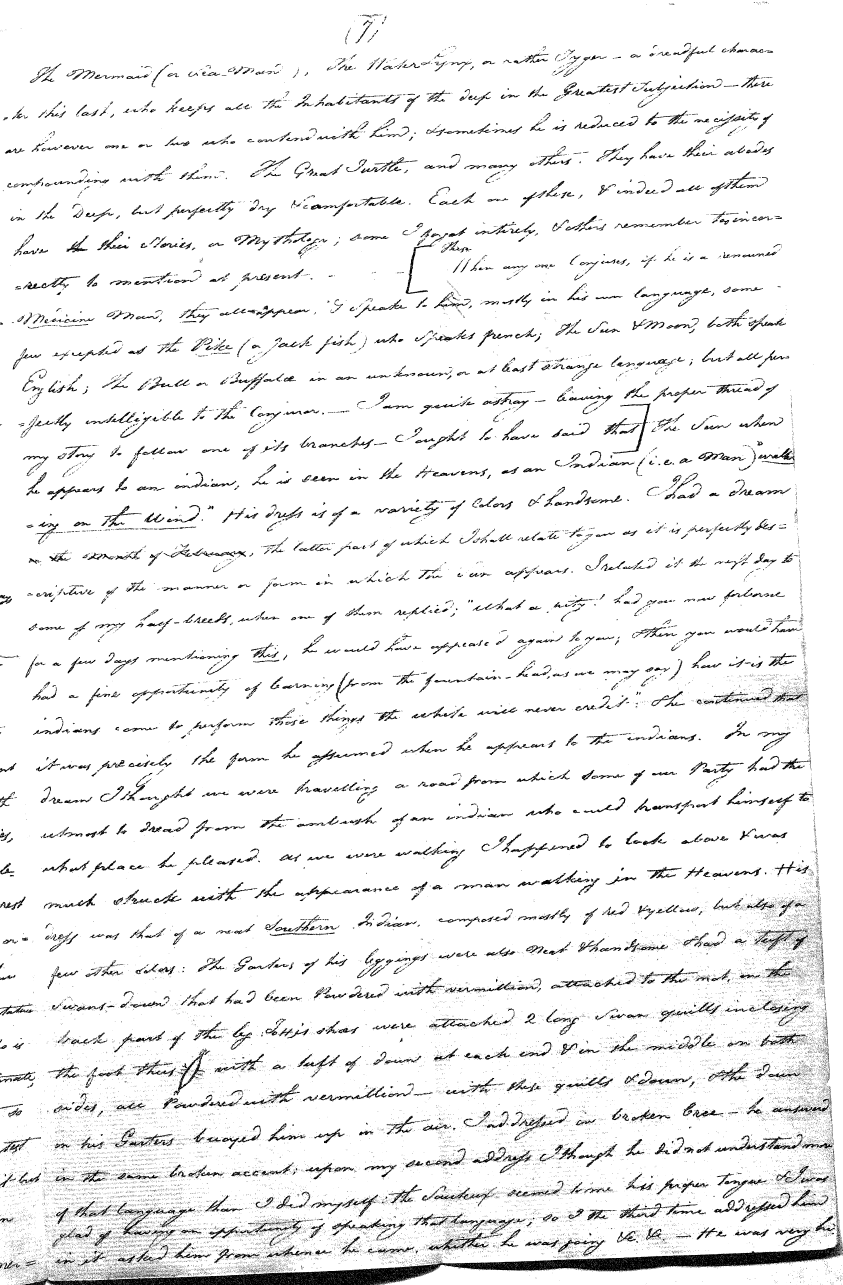 (7)
The Mermaid (or Sea-Man), The Water Lynx, or rather Tyger – a dreadful charac=
ter this last, who keeps all the Inhabitants of the deep in the Greatest Subjection – there
are however one or two who contend with him; & sometimes he is reduced to the necissity of
compounding with them. The Great Turtle, and many others. They have their abodes
in the Deep, but perfectly dry & comfortable. Each one of these, & indeed all of them
have their Stories, or Mythology; some I forget intirely, & others remember too incor=
=rectly to mention at present. - - - [ These
When any one Conjures, if he is a renouned
Medicine Man, they all appear, & Speake to him, mostly in his own language, some
few excepted as the Pike (or Jack fish) who Speaks french; the Sun & Moon, both speak
English; the Bull or Buffaloe in an unknown, or at least strange language; but all per=
=fectly intelligible to the Conjuror. — I am quite astray – leaving the proper thread of
my story to follow one of its branches – I ought to have said that] the Sun when
he appears to an indian, he is seen in the Heavens, as an Indian (i.e. a Man) "walk
=ing on the Wind." His dress is of a variety of Colors & handsome. I had a dream
in the month of February, the latter part of which I shall relate to you as it is perfectly des=
=criptive of the manner or form in which the Sun appears. I related it the next day to
some of my half-breeds, when one of them replied; "What a pity! had you now forborne
for a few days mentioning this, he would have appeared again to you; & then you would have
had a fine opportunity of learning (from the fountain-head, as we may say) how it is the
indians come to perform those things the white will never credit": He continued that
it was precisely the form he assumed when he appears to the indians. In my
dream I thought we were travelling a road from which some of our Party had the
utmost to dread from the ambush of an indian who could transport himself to
what place he pleased. As we were walking I happened to look above & was
much struck with the appearance of a man walking in the Heavens. His
dress was that of a neat Southern Indian, composed mostly of red & yellow, but also of a
few other colors: The Garters of his leggings were also neat & handsome & had a tuft of
Swans-down that had been Powdered with vermillion, attached to the knot, on the
back part of the leg. To His shoes were attached 2 long Swan quills inclosing
the foot thus with a tuft of down at each end & in the middle on both
sides, all Powdered with vermillion – with these quills & down, & the down
on his Garters buoyed him up in the air. I addressed in broken Cree – he answered
in the same broken accent; upon my second address I though he did not understand more
of that language than I did myself: the Sauteux seemed to me his proper tongue & I was
glad of having an opportunity of speaking that language; so I the third time addressed him
in it asked him from whence he came, whether he was going &c. &c. – He was very hi